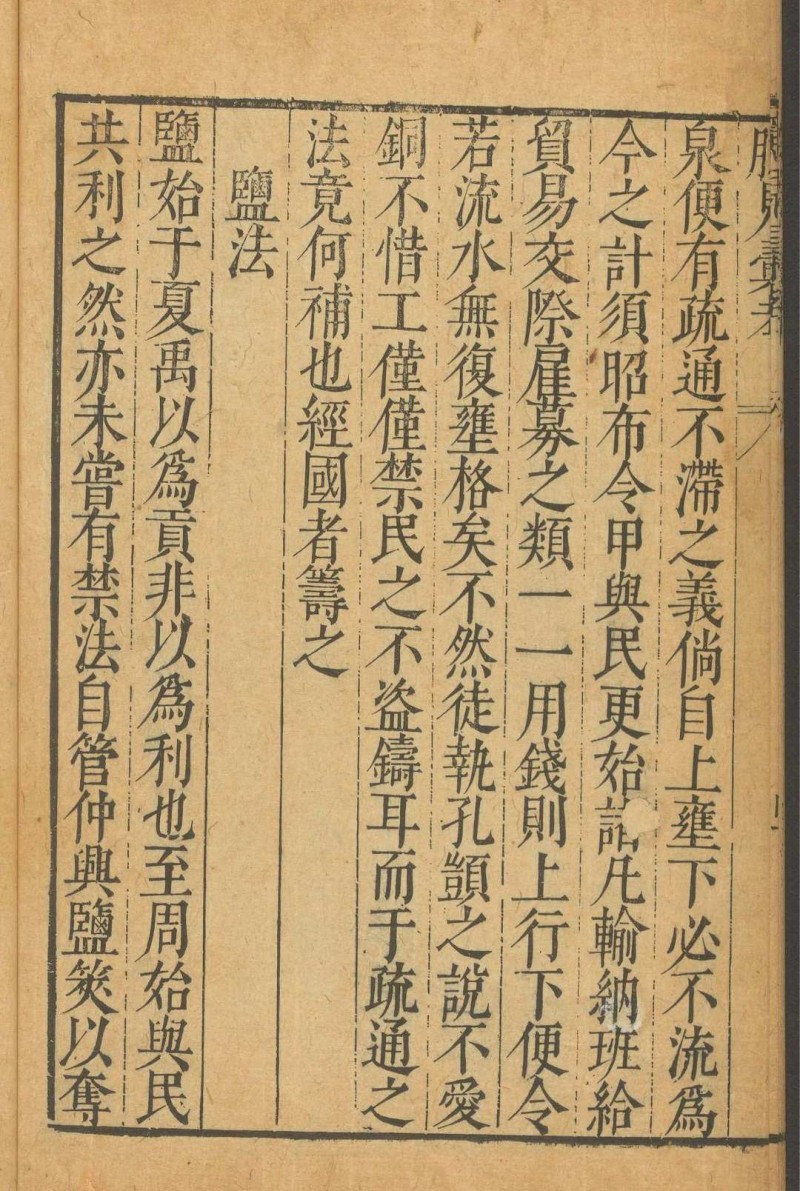 泉便有疏通不滯之義倘自上壅下必不流爲
今之計須昭布令甲與民更始諸凡輸納班給
貿易交際雇募之類一一用錢則上行下便令
若流水無復壅格矣不然徒執孔顗之說不愛
銅不惜工僅僅禁民之不盜鑄耳而于疏通之
法竟何補也經國者籌之
鹽法
鹽始于夏禹以爲貢非以爲利也至周始與民
共利之然亦未嘗有禁法自管仲興鹽筴以奪